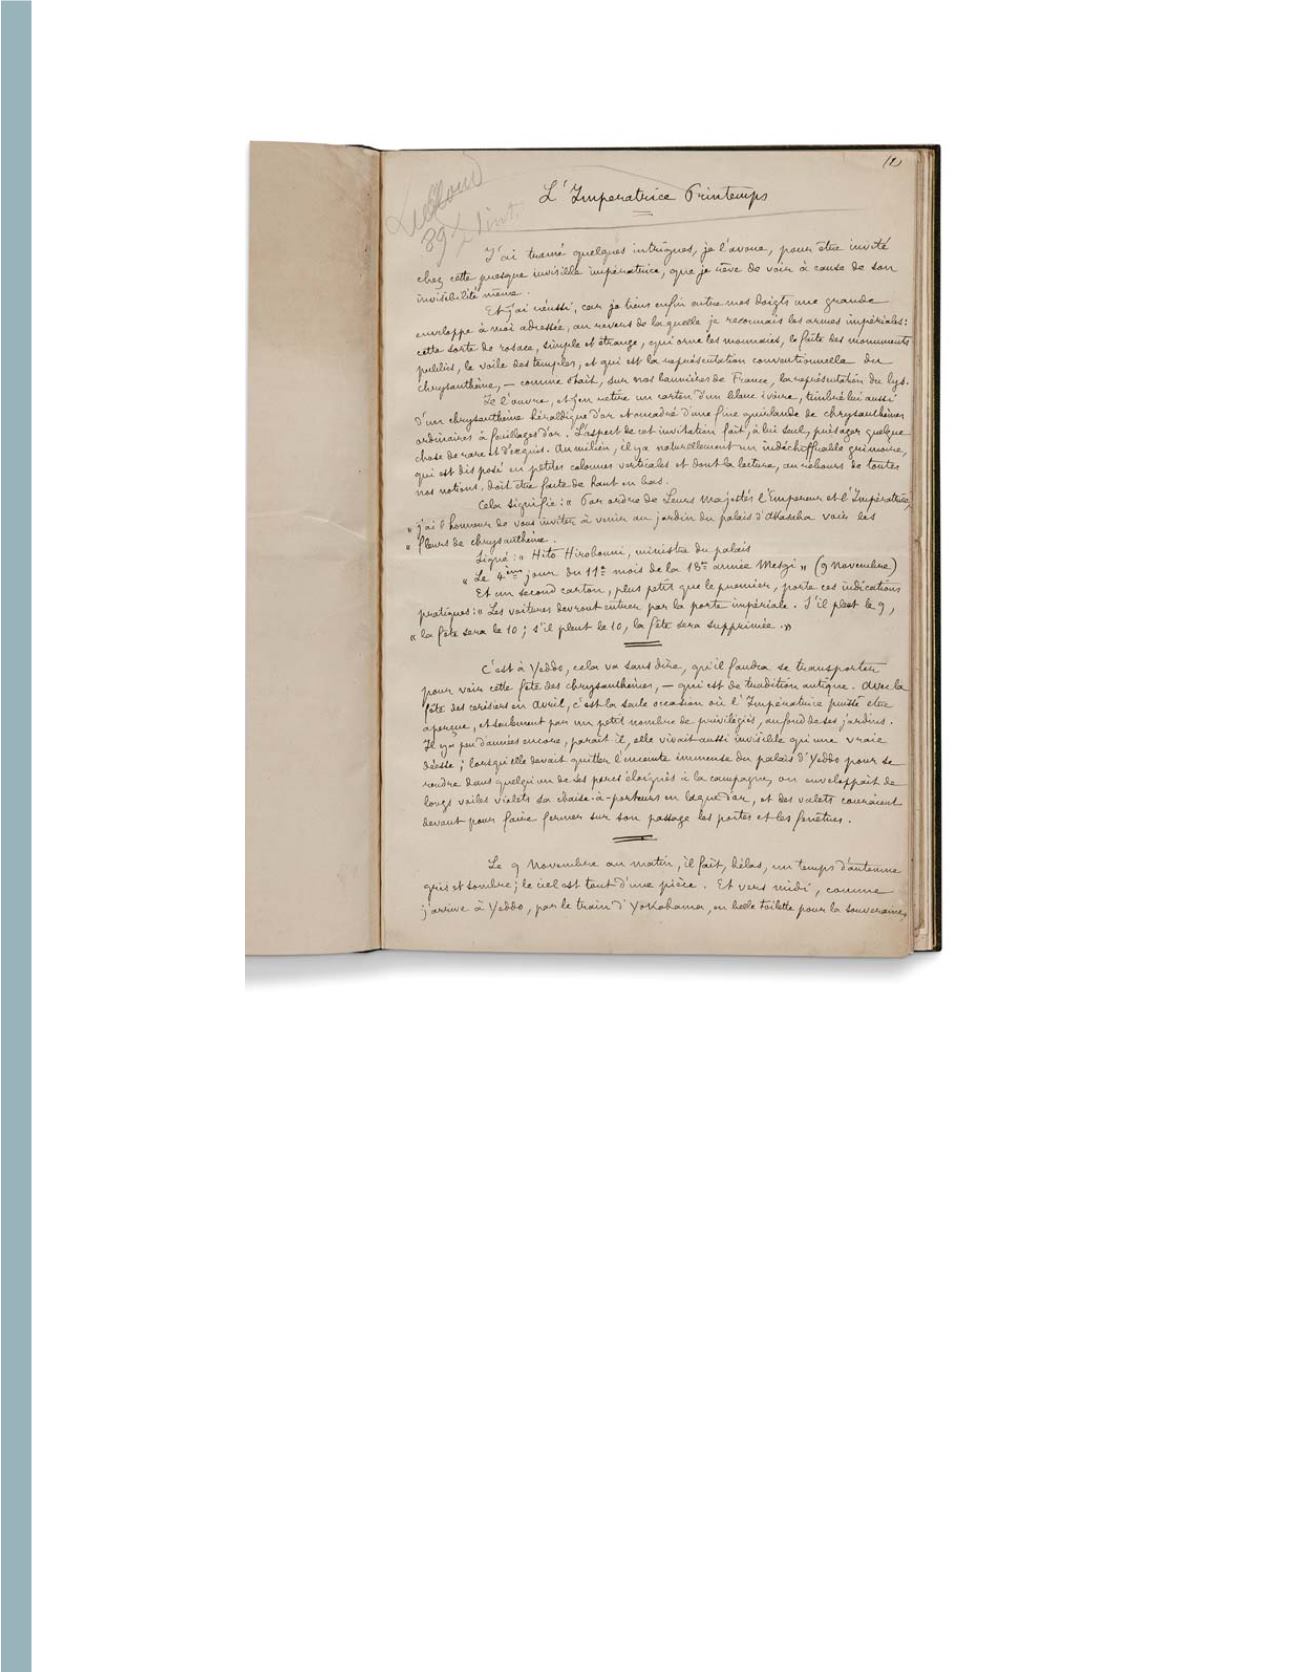 (1)
L'Imperatrice Printemps
39
J'ai tramé quelques intrigues, je l'avoue, pour être invité
chez cette presque invisible impératrice, que je rêve de voir à cause de son
invisibilité même.
Et j'ai réussi, car je tiens enfin entre mes doigts une grande
enveloppe à moi adressée, au revers de laquelle je reconnais les armes impériales:
cette sorte de rosace, simple et étrange, qui orne les monnaies, le faîte des monuments
publics, le voile des temples, et qui est la représentation conventionnelle du
chrysanthème, — comme était, sur nos bannières de France, la représentation du lys.
Je l'ouvre, et j'en retire un carton d'un blanc ivoire, timbré lui aussi
d'un chrysanthème héraldique d'or et encadré d'une fine guirlande de chrysanthèmes
ordinaires à feuillages d'or. L'aspect de cet invitation fait, à lui seul, présager quelque
chose de rare et d'exquis. Au milieu, il y a naturellement un indéchiffrable grimoire,
qui est disposé en petites colonnes verticales et dont la lecture, au rebours de toutes
nos notions, doit être faite de haut en bas.
Cela signifie: « Par ordre de Leurs Majestés l'Empereur et l'Impératrice,
« j'ai l'honneur de vous inviter à venir au jardin du palais d'Akasaka voir les
« fleurs de chrysanthème.
Signé: « Hito Hirobouni, ministre du palais
« Le 4ème jour du 11e mois de la 18e année Mesgi » (9 Novembre)
Et un second carton, plus petit que le premier, porte ces indications
pratiques: « Les voitures devront entrer par la porte impériale. S'il pleut le 9,
« la fête sera le 10; s'il pleut le 10, la fête sera supprimée. »
C'est à Yeddo, cela va sans dire, qu'il faudra se transporter
pour voir cette fête des chrysanthèmes, — qui est de tradition antique. Avec la
fête des cerisiers en Avril, c'est la seule occasion où l'Impératrice puisse être
aperçue, et seulement par un petit nombre de privilégiés, au fond de ses jardins.
Il y a peu d'années encore, paraît il, elle vivait aussi invisible qu'une vraie
déesse; lorsqu'elle devait quitter l'enceinte immense du palais d'Yeddo pour se
rendre dans quelqu'un de ses parcs éloignés à la campagne, on enveloppait de
longs voiles violets sa chaise-à-porteurs en laque d'or, et des valets couraient
devant pour faire fermer sur son passage les portes et les fenêtres.
Le 9 Novembre au matin, il fait, hélas, un temps d'automne
gris et sombre; le ciel est tout d'une pièce. Et vers midi, comme
j'arrive à Yeddo, par le train d'Yokohama, en belle toilette pour la souveraine,